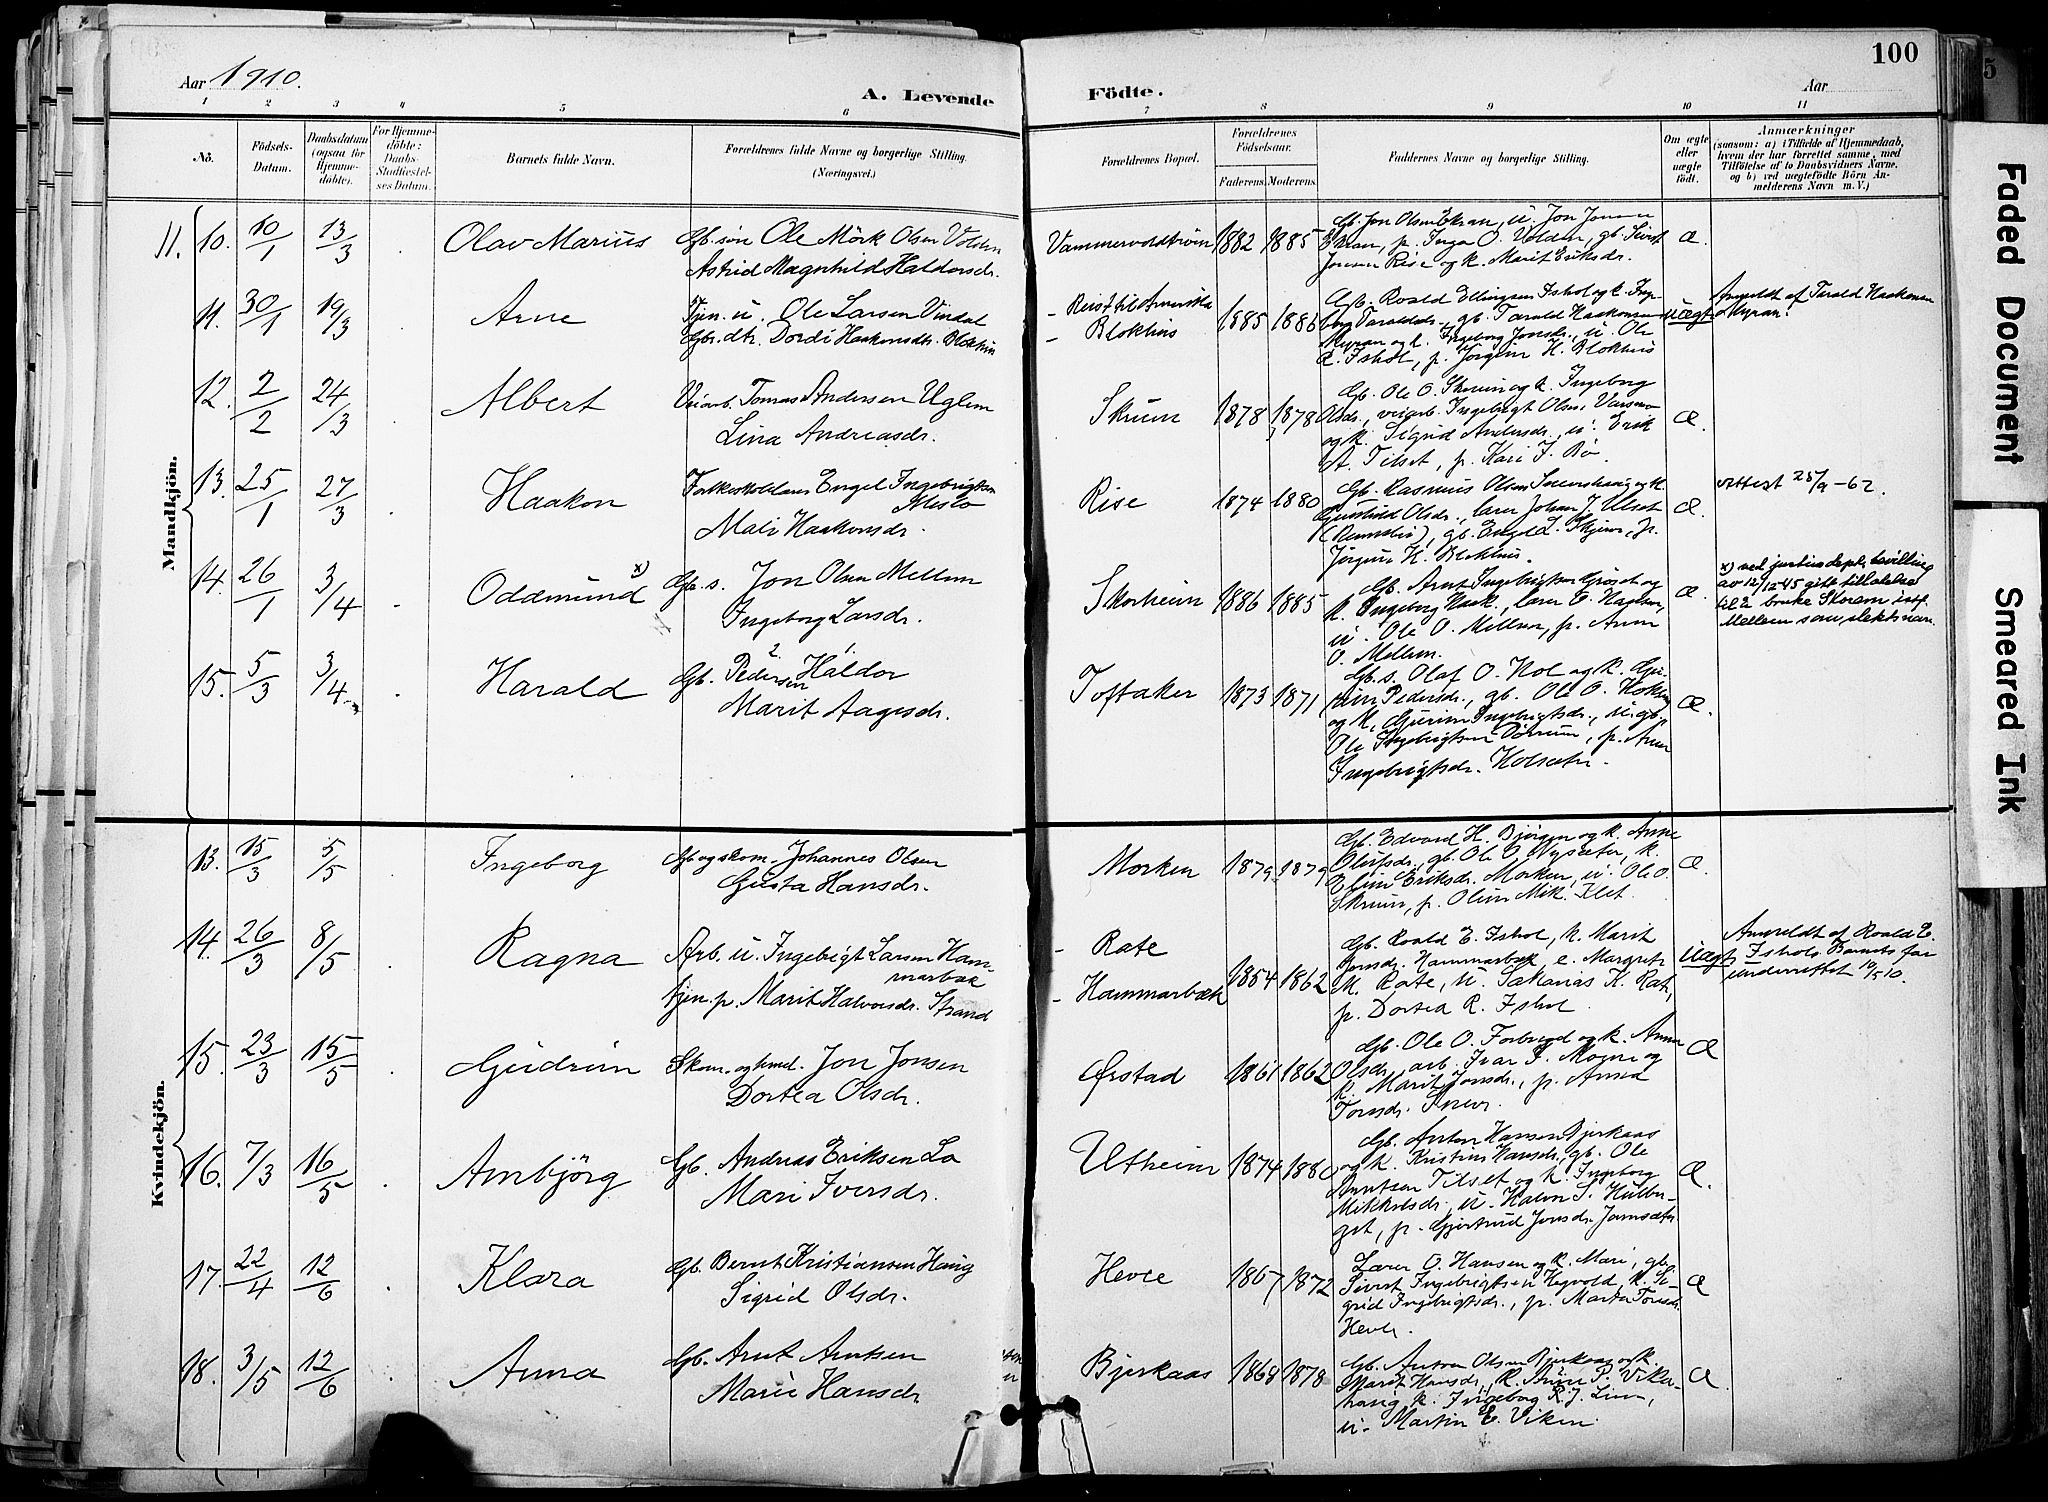 Aar 1910.
A. Levende
Födte.
Aar
100
5
1 2 3 4 5 6 7 8 9 10 11
No.
Födsels-
Datum.
Daabsdatum
(ogsaa for
Hjemme-
döbte).
For Hjemme-
döbte:
Daabs-
Stadfæstel-
ses Datum.
Barnets fulde Navn.
Forældrenes fulde Navne og borgerlige Stilling.
(Næringsvei.)
Forældrenes Bopæl.
Forældrenes
Födselsaar.
Faderens. Moderens.
Faddernes Navne og borgerlige Stilling.
Om ægte
eller
uægte
födt.
Anmærkninger
(saasom: a) i Tilfælde af Hjemmedaab,
hvem der har forrettet samme, med
Tilföielse af to Daabsvidners Navne.
og b) ved uægtefödte Börn An-
melderens Navn m. V.)
Mandkjön.
11. 10. 10/1 13/3 Olav Marius
Gb. søn Ole Mörk Olsen Volden
Astrid Magnhild Haldorsdr.
Vammervoldtrøen 1882 1885
Gb. Jon Olsen Ekran, u. Jon Jonsen
Ekran, p. Inga O. Volden, gb. Sivert
Jonsen Rise og k. Marit Eriksdr.
Æ.
11. 30/1 19/3 Arne
Tjen. u. Ole Larsen Vindal
Gbr. dtr. Dordi Haakonsdr. Blokhus
- Reist til Amerika
- Blokhus
1885 1886
Gb. Roald Ellingsen Ishol og k. Inge-
borg Taraldsdr., gb. Tarald Haakonsen
Myran og k. Ingeborg Jonsdr., u. Ole
E. Ishol, p. Jørgine H. Blokhus
uægt.
Anmeldt af Tarald Haakonsen
Myran.
12. 2/2 24/3 Albert
Veiarb. Tomas Andersen Uglem
Lina Andreasdr.
Skrum 1878 1878
Gb. Ole O. Skrum og k. Ingeborg
Olsdr., veiarb. Ingebrigt Olsen
og k. Sigrid Andersdr., u. Erik
A. Tilset, p. Kari J. Bø.
Æ.
13. 25/1 27/3 Haakon
Folkeskolelærer Engel Ingebrigtsen
Meslo
Mali Haakonsdr.
Rise 1874 1880
Gb. Rasmus Olsen og k.
Gunhild Olsdr., lærer Johan J. Ulset
gb. Engel L. Skjerve, p.
Jørgine H. Blokhus.
Æ.
Attest 25/9-62.
14. 26/1 3/4 Oddmund x)
Gb. s. Jon Olsen Mellem
Ingeborg Larsdr.
Skorheim 1886 1885
Gb. Arnt Ingebrigtsen Gröset og
k. Ingeborg Haak., lærer E. Hagen,
u. Ole O. Mellem, p. Anne
O. Mellem.
Æ.
x) ved justisdepts bevilling
av 12/12 45 gitt tillatelse
til å bruke Skorem istf.
Mellem som slektsnavn.
15. 5/3 3/4 Harald
2 1
Gb. Pedersen Haldor
Marit Aagesdr.
Toftaker 1873 1871
Gb. s. Olaf O. Hol og k. Gju-
rine Pedersdr., gb. Ole O. Holsæter
og k. Gjurine Ingebrigtsdr., u. gb.
Ole Ingebrigtsen Dørrum, p. Anne
Ingebrigtsdr. Holsæter.
Æ.
Kvindekjön.
13. 15/3 5/5 Ingeborg
Gb og skom. Johannes Olsen
Gusta Hansdr.
Morken 1879 1879
Gb. Edvard H. Bjørgen og k. Anne
Olufsdr., gb. Ole O. Nysæter, k.
Eline Eriksdr. Morken, u. Ole O.
Skrum, p. Oline Mik. Flet.
Æ.
14. 26/3 8/5 Ragna
Arb. u. Ingebrigt Larsen Ham-
marbæk
tjen. p. Marit Halvorsdr. Strand
- Rate
- Hammarbæk
1854 1862
Gb. Roald E. Ishol, k. Marit
Jonsdr. Hammarbæk, e. Margrete
M. Rate, u. Sakarias K. Rate,
p. Dortea R. Ishol.
Uægt.
Anmeldt af Roald E.
Ishol. Barnets far
underrettet 10/5 10.
15. 23/3 15/5 Gudrun
Skom. og hmd. Jon Jonsen
Dortea Olsdr.
Ørstad 1861 1862
Gb. Ole O. Forbord og k. Anne
Olsdr., arb. Ivar P. Mogne og
k. Marit Jonsdr., p. Anna
Tomsdr. Snever.
Æ
16. 7/3 16/5 Arnbjörg
Gb. Andreas Eriksen Lo
Mari Iversdr.
Utheim 1874 1880
Gb. Anton Hansen Bjerkaas
og k. Kristine Hansdr., gb. Ole
Arntsen Tilset og k. Ingeborg
Mikkelsdr., u. Halvor S. Hulber-
get, p. Gjertrud Jonsdr. Jamsæter.
Æ.
17. 22/4 12/6 Klara
Gb. Bernt Kristiansen Haug
Sigrid Olsdr.
Hevle 1867 1872
Lærer O. Hansen og k. Mari, gb.
Sivert Ingebrigtsen Hegvold, k. Si-
grid Ingebrigtsdr., p. Marta Tomsdr.
Hevle.
Æ
18. 3/5 12/6 Anna
Gb. Arnt Arntsen
Marie Hansdr.
Bjerkaas 1868 1878
Gb. Anton Olsen Bjerkaas og k.
Marit Hansdr., k. Anne P. Viker-
haug, k. Ingeborg R. J. Linn,
u. Martin E. Viken.
Æ.
Faded Document
Smeared Ink